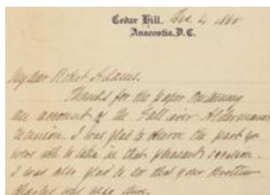 Cedar Hill. Dec 4 1885
Anacostia, D.C.
My dear Robert Adams.
Thanks for the paper containing
an account of the Fall River Aldermanic
reunion. I was glad to observe the part you
were able to take in that pleasant occasion.
I was also glad to see that your brother
Charles was also there.